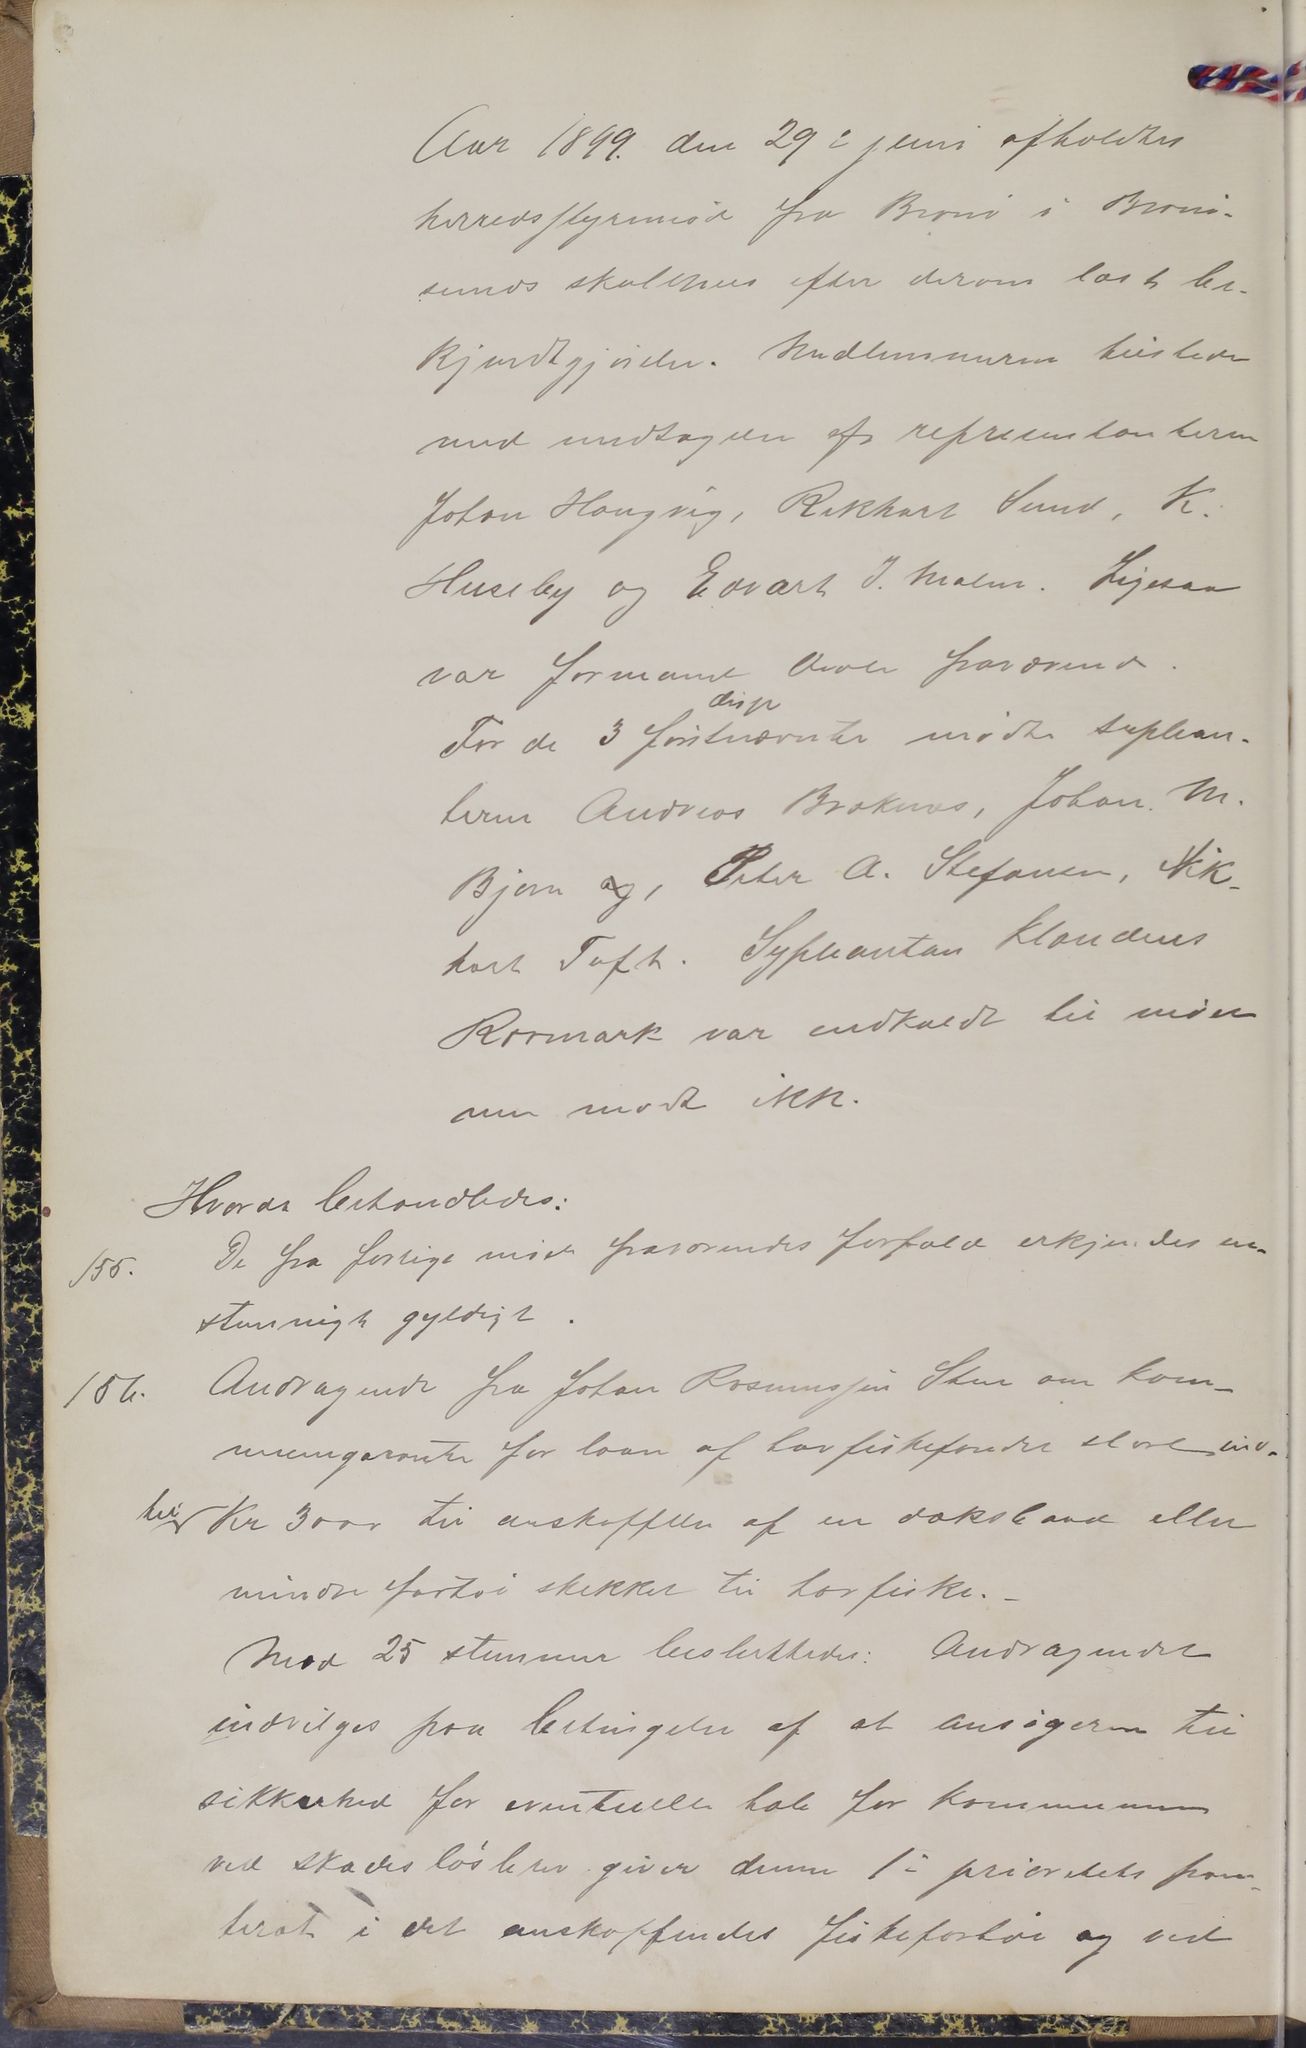 Aar 1899. den 29: juni afholdtes
herredsstyremøde for Brønø i Brønø-
sunds skolehus efter derom læst be-
kjendtgjørelse. Medlemmerne tilstede
med undtagelse af repræsentanterne
Johan Haugvig, Rikhart Sund, K.
Huseby og Edvart J. Malm. Ligesaa
var formand fraværende.
disp
For de 3 førstnævnte mødte suplean-
terne Andreas Bræknæs, Johan M.
Bjørn og, Peter A. Stefansen, Rik-
hart Toft. Supleanten Klaudius
Rørmark var indkaldt til mødet
men mødte ikke.
Hvorda behandledes:
155. De fra forrige møde fraværendes forfald erkjendes en-
stemmigt gyldigt.
156. Andragende fra Johan Rasmussen Sten om kom-
munegaranti for laan af havfiskefondet stort ind-
til Kr 3000 til anskaffelse af en dæksbaad eller
mindre fartøi skikket til havfiske. -
Med 25 stemmer besluttedes: Andragendet
indvilges paa betingelse af at ansøgeren til
sikkerhed for eventuelle tab for kommunen
ved skadesløsbrev giver denne 1: prioritets pan-
terat i det anskaffendes fiskefartøi og ved